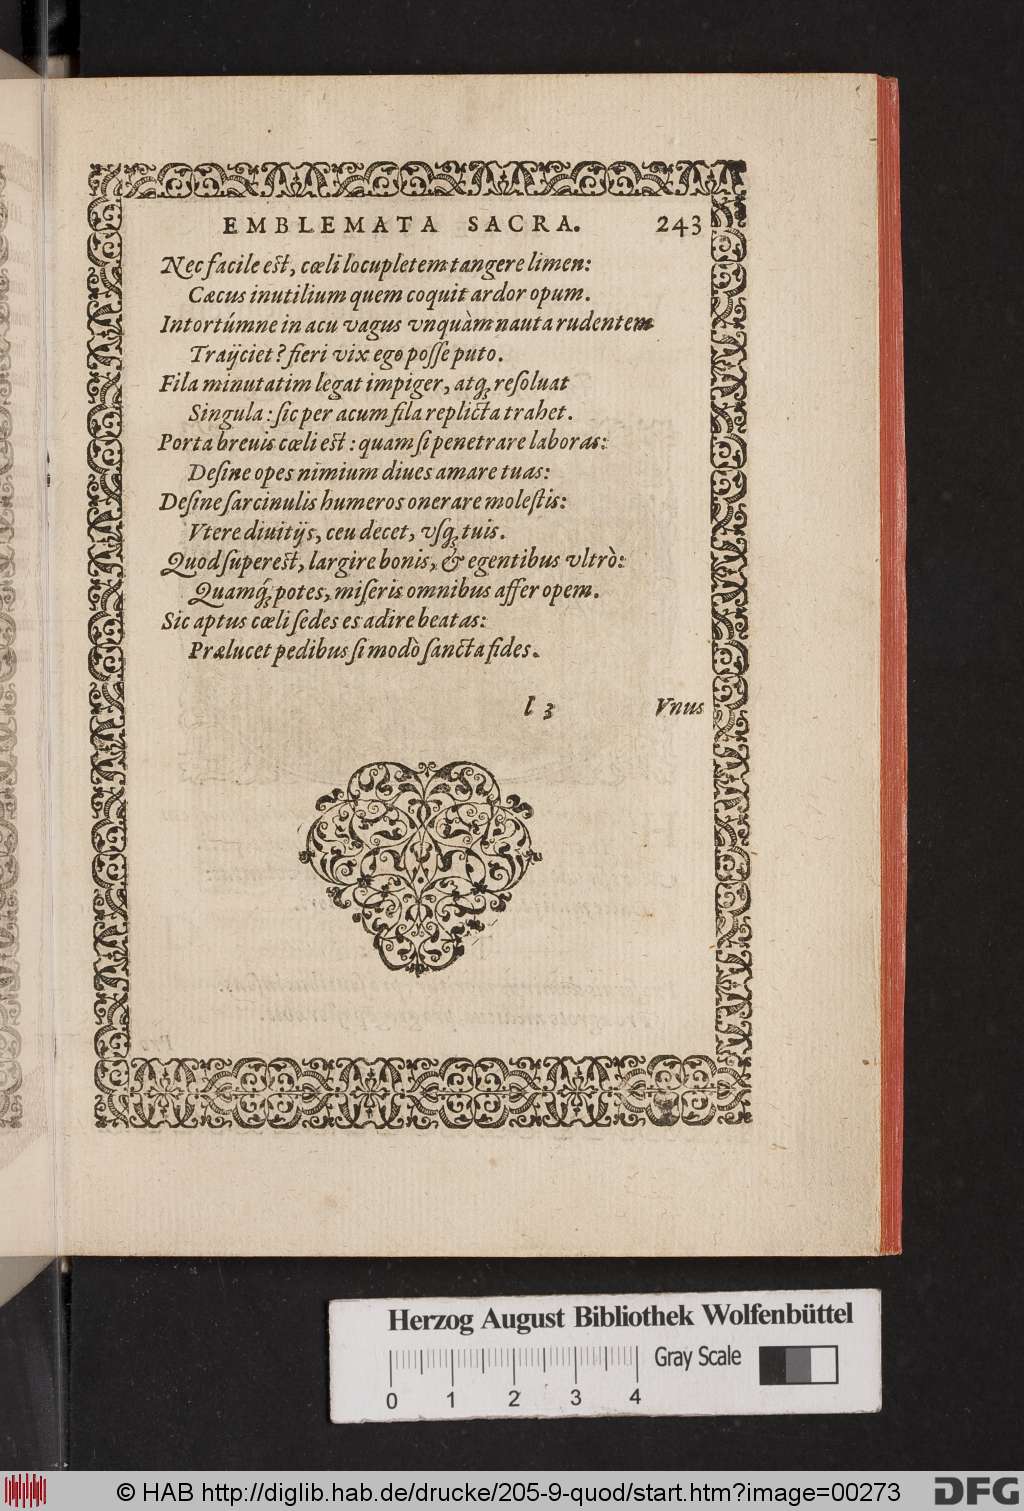 EMBLEMATA SACRA. 243
Nec facile est, cœli locupletem tangere limen:
Cæcus inutilium quem coquit ardor opum.
Intortúmne in acu vagus vnquàm nauta rudentem
Traÿciet? fieri vix ego posse puto.
Fila minutatim legat impiger, atq; resoluat
Singula: sic per acum fila replicta trahet.
Porta breuis cœli est: quam si penetrare laboras:
Desine opes nimium diues amare tuas:
Desine sarcinulis humeros onerare molestis:
Vtere diuitijs, ceu decet, vsq; tuis.
Quod superest, largire bonis, & egentibus vltrò:
Quamq́; potes, miseris omnibus affer opem.
Sic aptus cœli sedes es adire beatas:
Prælucet pedibus si modò sancta fides.
l 3 Vnus
Herzog August Bibliothek Wolfenbüttel
Gray Scale
0 1 2 3 4
© HAB http://diglib.hab.de/drucke/205-9-quod/start.htm?image=00273
DFG